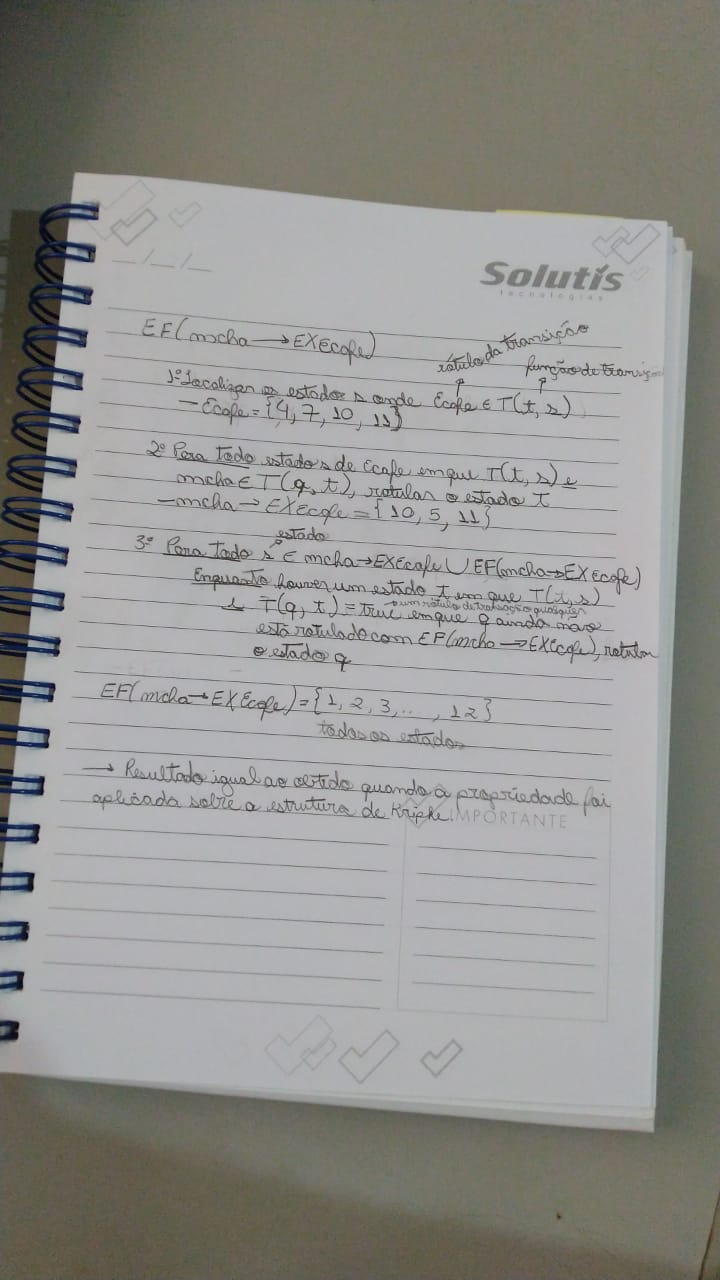 __/__/__
Solutis
tecnologias
EF(mcha → EXEcafe)
rótulo da transição
função de transição
1º Localizar os estados s onde Ecafe ∈ T(t, s)
– Ecafe = {4, 7, 10, 11}
2º Para todo estado s de Ecafe em que T(t, s) e
mcha ∈ T(q, t), rotular o estado t
– mcha → EXEcafe = {10, 5, 11}
estado
3º Para todo s ∈ mcha → EXEcafe ∪ EF(mcha → EXEcafe)
Enquanto houver um estado t em que T(t, s)
um rótulo de transição qualquer
e T(q, t) = true em que q ainda não
está rotulado com EF(mcha → EXEcafe), rotular
o estado q
EF(mcha → EXEcafe) = {1, 2, 3, ... , 12}
todos os estados
→ Resultado igual ao obtido quando a propriedade foi
aplicada sobre a estrutura de Kripke.
IMPORTANTE